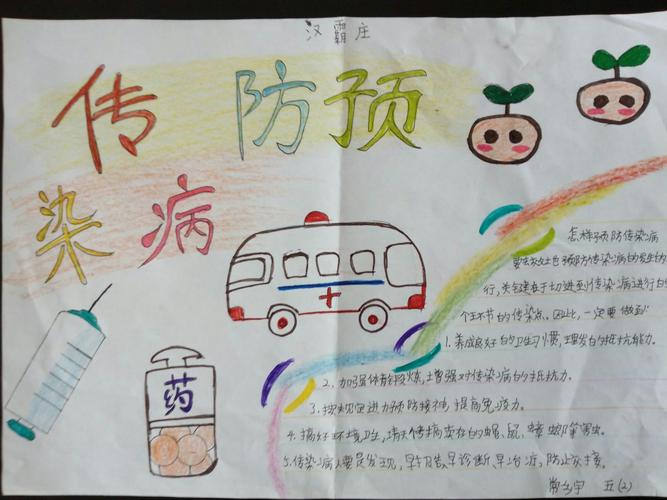 汉霸庄
传 防预
染病
药
怎样预防传染病
要去发过也预防传染病的发生的
行,关键在于切进到传染病进行的
个环节的传染 因此,一定要做到
1.养成良好的卫生习惯,理发自的抵抗能力。
2.加强体育锻炼,增强对传染病的抵抗力。
3.按规定进力预防接种 提高免疫力。
4.搞好环境卫生,消灭传播 的蝇、鼠、蟑螂等害虫。
5.传染病人要是发现,早报告、早诊断、早治疗,防止交接。
常 宇 五(2)